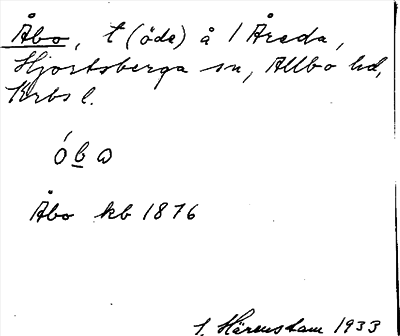 Åbo, t (öde) å 1 Åreda,
Hjortsberga sn, Allbo hd,
Krbs l.
óbω
Åbo kb 1876
Härenstam 1933